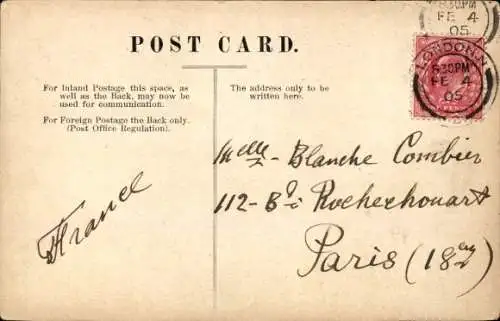 POST CARD.
For Inland Postage this space, as
well as the Back, may now be
used for communication.
For Foreign Postage the Back only.
(Post Office Regulation).
The address only to be
written here.
6.30PM
FE 4
05
LONDON.N
6.30PM
FE 4
05
Melle Blanche Combier
112 - Bd Rochechouart
Paris (18e)
France